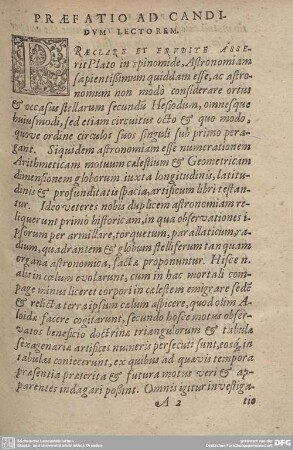 PRÆFATIO AD CANDI-
DVM LECTOREM.
PRÆCLARE ET ERVDITE ASSE-
rit Plato in epinomide, Astronomiam
sapientißimum quiddam esse, ac astro-
nomum non modò considerare ortus
& occasus stellarum secundũ Hesiodum, omnesque
huiusmodi, sed etiam circuitus octo & quo modo,
quove ordine circulos suos singuli sub primo pera-
gant. Siquidem astronomiam esse numerationem
Arithmeticam motuum cælestium & Geometricam
dimensionem globorum iuxta longitudinis, latitu-
dinis & profunditatis spacia, artificum libri testan-
tur. Ideo veteres nobis duplicem astronomiam re-
liquerunt primò historicam, in qua observationes i-
psorum per armillare, torquetum, parallaticum, ra-
dium, quadrantem & globum stelliferum tanquam
organa astronomica, factæ proponuntur. Hisce n.
alis in cœlum evolarunt, cum in hac mortali com-
page minus liceret corpori in cælestem emigrare sedẽ
& relicta terra ipsum cælum aspicere, quod olim A-
loidæ facere cogitarunt, secundo hosce motus obser-
vatos beneficio doctrinæ triangulorum & tabulæ
sexagenariæ artifices numeris persecuti sunt, eosq, in
tabulas coniecerunt, ex quibus ad quævis tempora
præsentia præterita & futura motus veri & ap-
parentes indagari poßint. Omnis igitur investiga-
A 2 tio